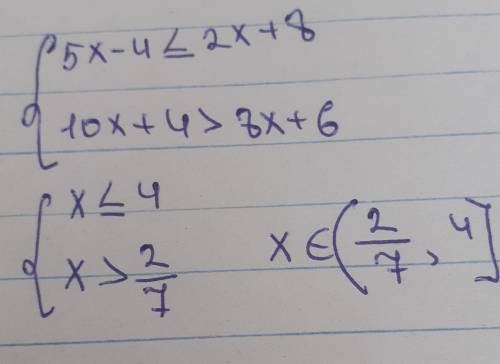 5x-4≤2x+8
10x+4>3x+6
x≤4
x>2/7 x∈(2/7, 4]